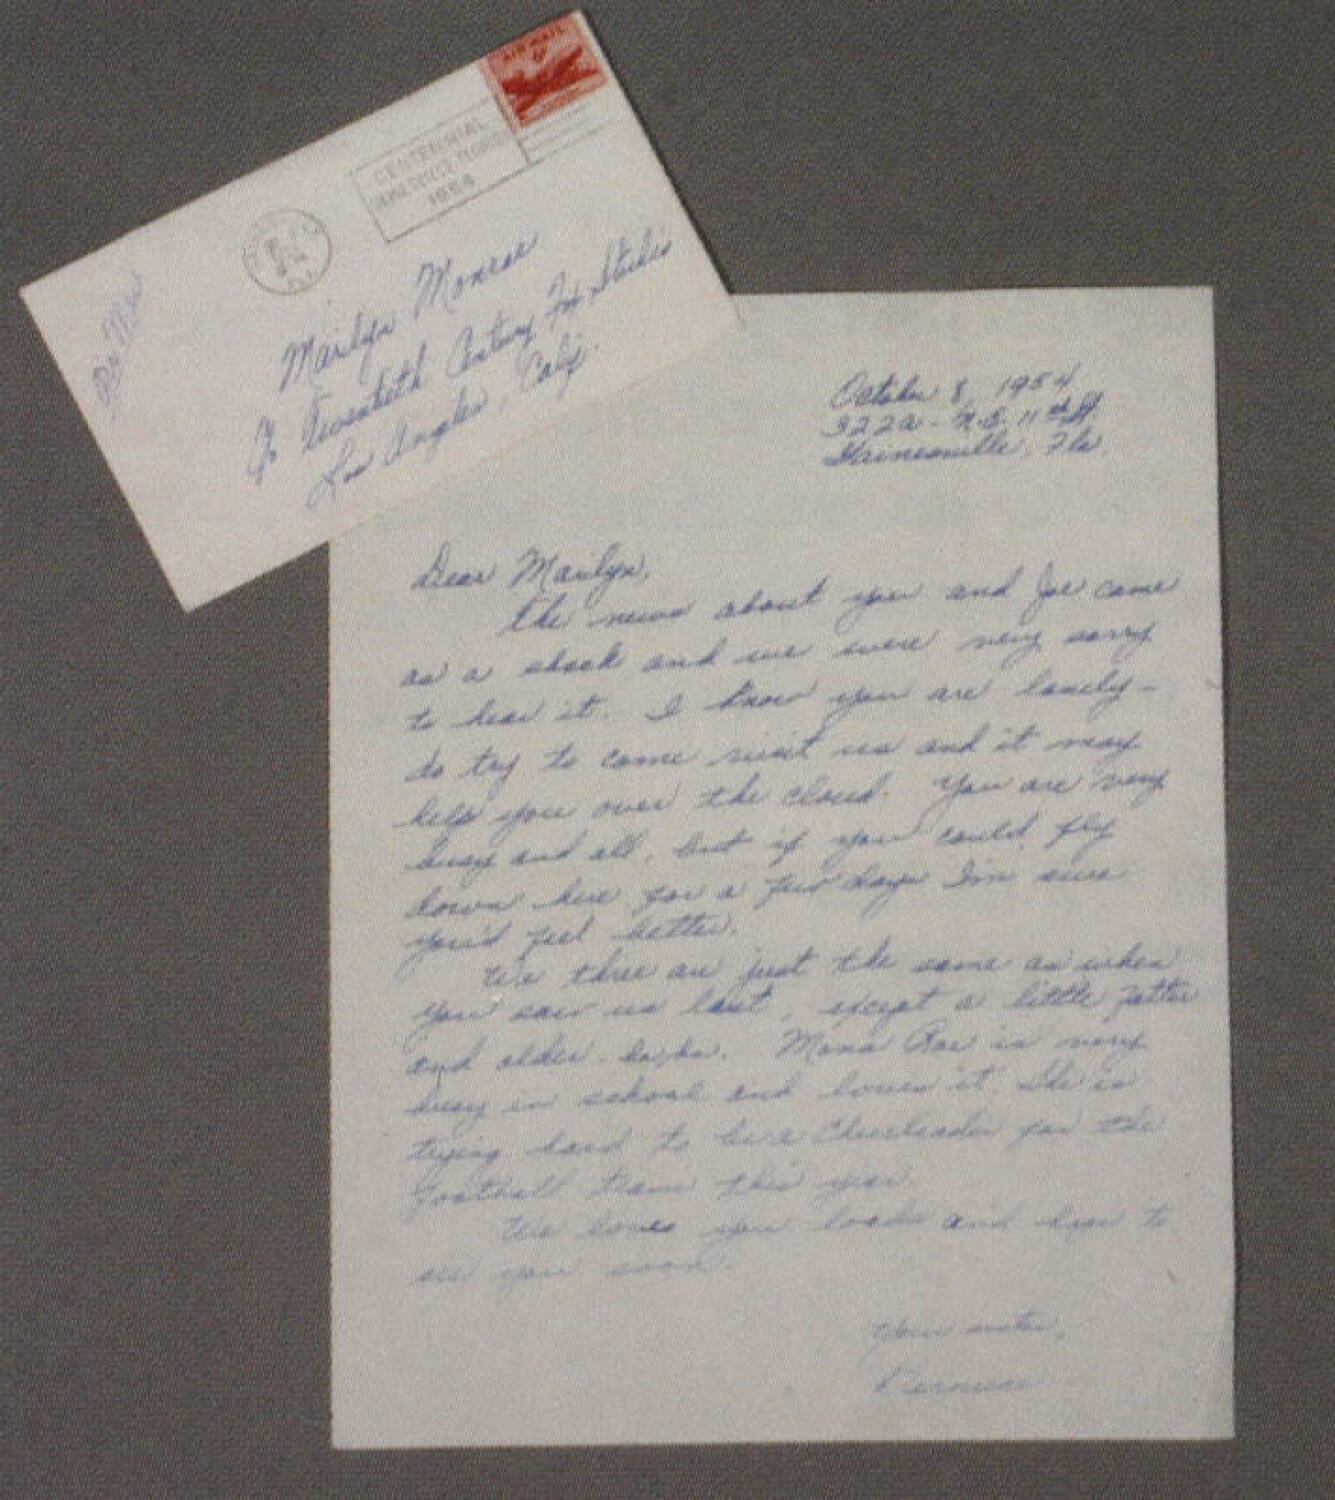 AIR MAIL
6¢
CENTENNIAL
GAINESVILLE FLORIDA
1954
Air Mail
Marilyn Monroe
℅ Twentieth Century Fox Studio
Los Angeles, Calif.
October 8, 1954
322a - N.E. 11th St.
Gainesville, Fla.
Dear Marilyn,
the news about you and Joe came
as a shock and we were very sorry
to hear it. I know you are lonely -
do try to come visit us and it may
help you over the cloud. You are very
busy and all, but if you could fly
down here for a few days I'm sure
you'd feel better.
We three are just the same as when
you saw us last, except a little fatter
and older - ha, ha. Mona Rae is very
busy in school and loves it. She is
trying hard to be a Cheerleader for the
football team this year.
We love you loads and hope to
see you soon.
Your sister,
Berniece